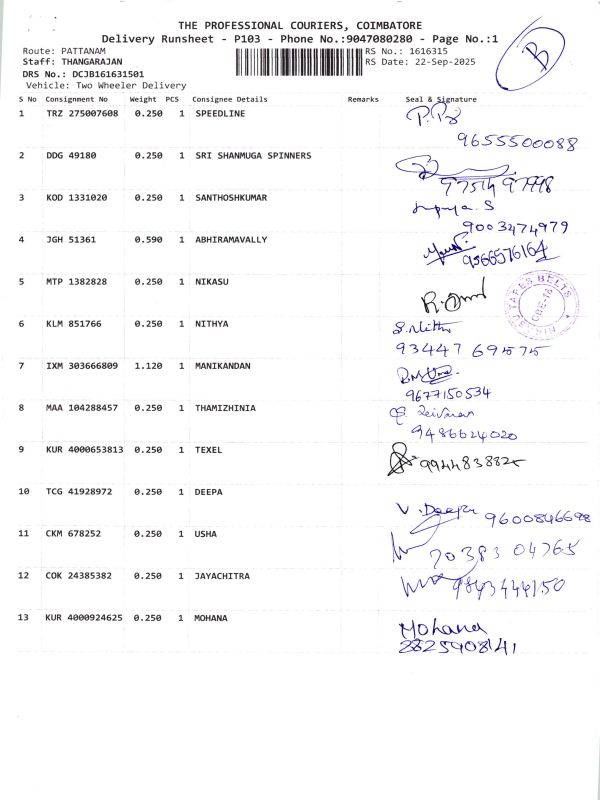 THE PROFESSIONAL COURIERS, COIMBATORE
Delivery Runsheet - P103 - Phone No.:9047080280 - Page No.:1
B
Route: PATTANAM RS No.: 1616315
Staff: THANGARAJAN RS Date: 22-Sep-2025
DRS No.: DCJB161631501
Vehicle: Two Wheeler Delivery
S No Consignment No Weight PCS Consignee Details Remarks Seal & Signature
1 TRZ 275007608 0.250 1 SPEEDLINE
9655500088
2 DDG 49180 0.250 1 SRI SHANMUGA SPINNERS
3 KOD 1331020 0.250 1 SANTHOSHKUMAR
9003474979
4 JGH 51361 0.590 1 ABHIRAMAVALLY
9566576164
5 MTP 1382828 0.250 1 NIKASU
TAPES BELTS
CBE-18
6 KLM 851766 0.250 1 NITHYA S.Nithya
93447 69575
7 IXM 303666809 1.120 1 MANIKANDAN
9677150534
8 MAA 104288457 0.250 1 THAMIZHINIA
9486624020
9 KUR 4000653813 0.250 1 TEXEL
9944838825
10 TCG 41928972 0.250 1 DEEPA V.Deepa 9600846698
11 CKM 678252 0.250 1 USHA
70383 04765
12 COK 24385382 0.250 1 JAYACHITRA
9843444150
13 KUR 4000924625 0.250 1 MOHANA Mohana
2825908141